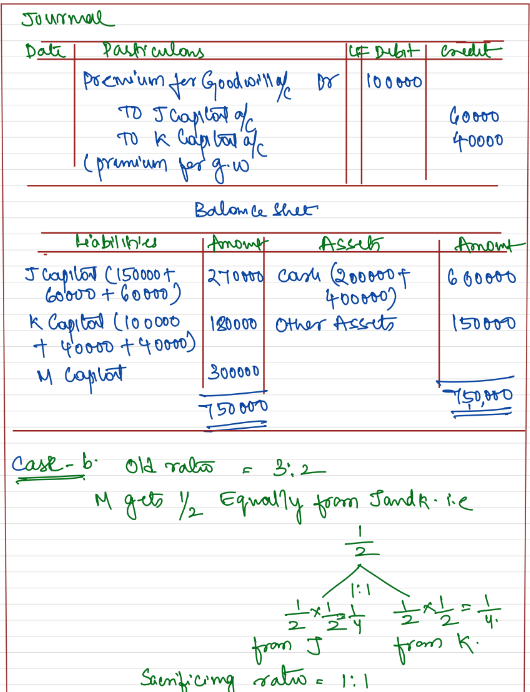 Journal
Date Particulars LF Debit Credit
Premium for Goodwill a/c Dr 100000
To J Capital a/c 60000
To K Capital a/c 40000
(premium for g.w
Balance Sheet
Liabilities Amount Assets Amount
J Capital (150000+ 270000 Cash (200000+ 600000
60000 + 60000) 400000)
K Capital (100000 180000 Other Assets 150000
+ 40000 + 40000)
M Capital 300000
750000 750,000
Case - b. Old ratio = 3:2
M gets 1/2 Equally from J and K. i.e
1/2
1:1
1/2 × 1/2 = 1/4 1/2 × 1/2 = 1/4.
from J from K.
Sacrificing ratio = 1:1